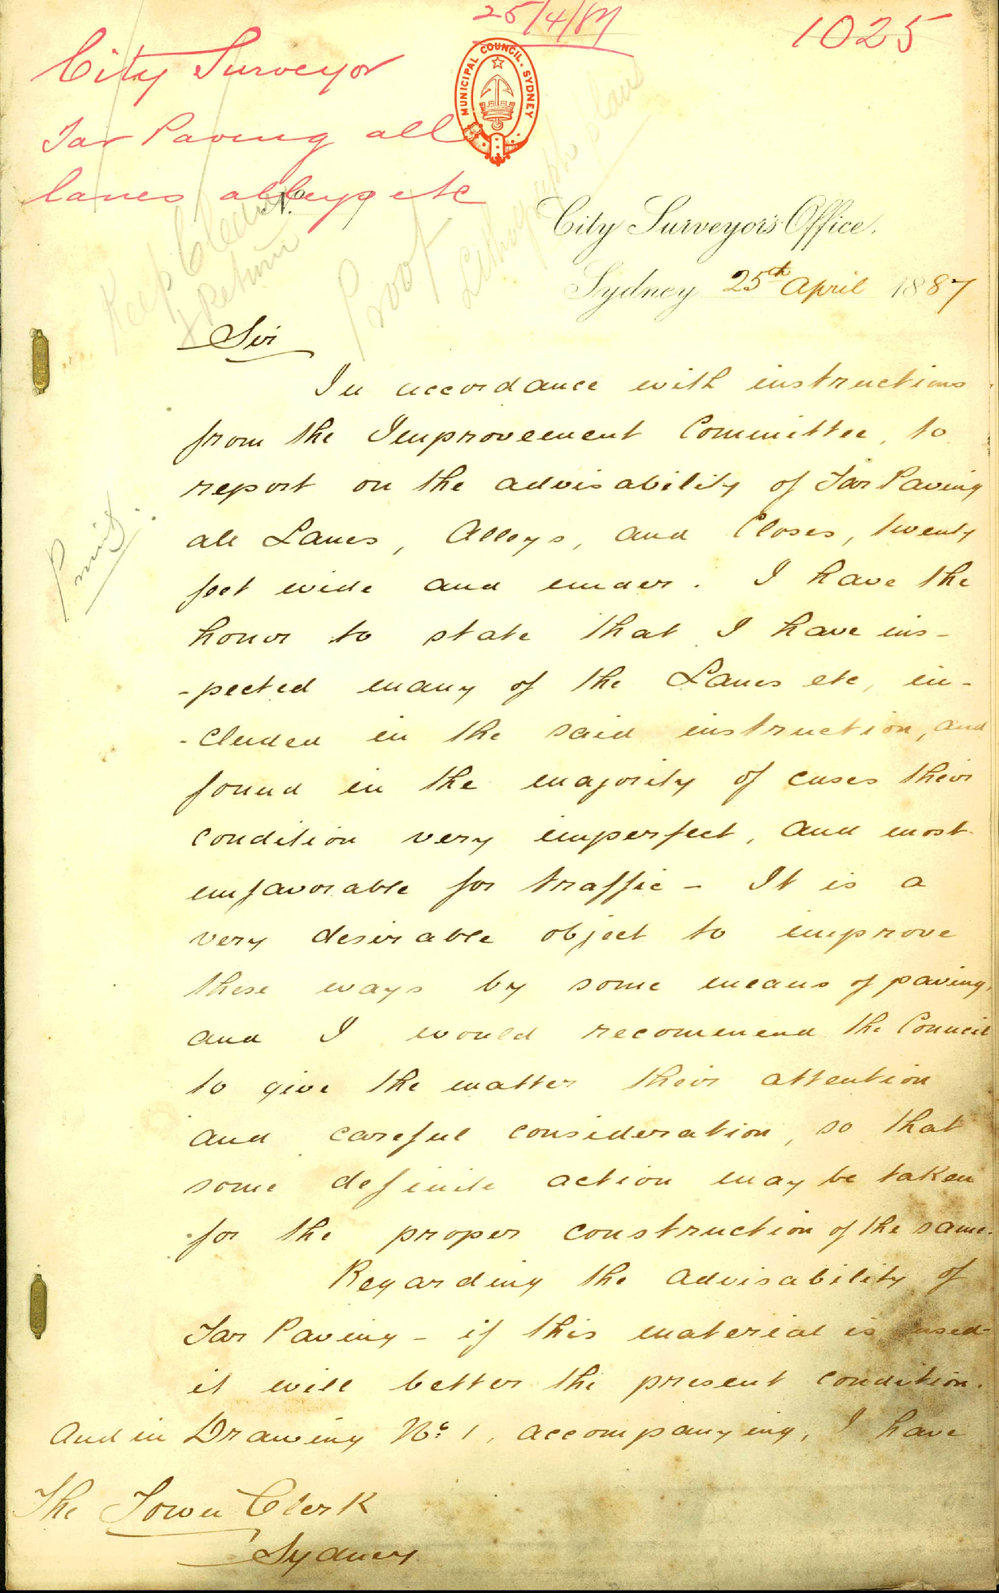 25/4/87
1025
City Surveyor
Tar Paving all
lanes alleys etc
MUNICIPAL COUNCIL. SYDNEY
Keep Clean
& Return
Proof
Print.
No.
City Surveyor's Office,
Sydney 25th April 1887
Sir
In accordance with instructions
from the Improvement Committee, to
report on the advisability of Tar Paving
all Lanes, Alleys, and Closes, twenty
feet wide and under. I have the
honor to state that I have ins-
-pected many of the Lanes etc, in-
-cluded in the said instruction, and
found in the majority of cases their
condition very imperfect, and most
unfavorable for traffic - It is a
very desirable object to improve
these ways by some means of paving,
and I would recommend the Council
to give the matter their attention
and careful consideration, so that
some definite action may be taken
for the proper construction of the same.
Regarding the advisability of
Tar Paving - if this material is used
it will better the present condition.
And in Drawing No. 1, accompanying, I have
The Town Clerk
Sydney